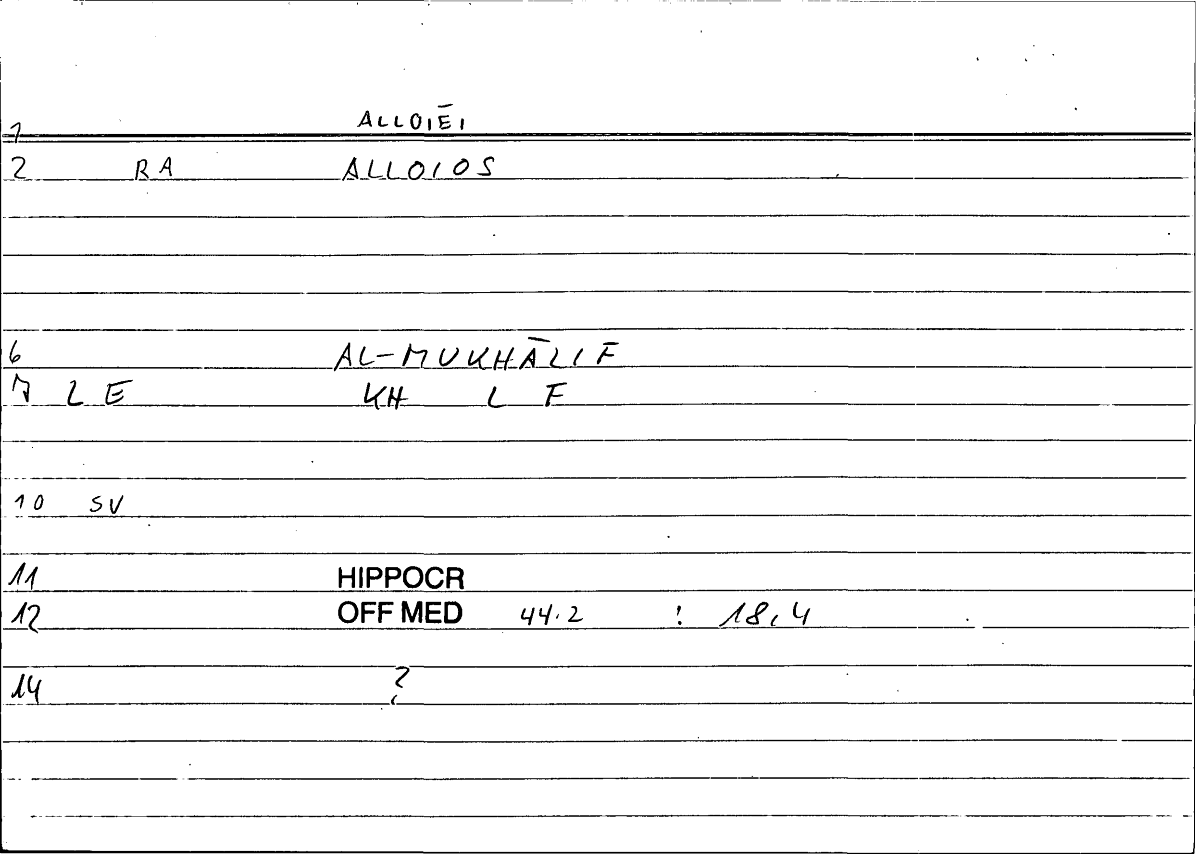 1 ALLOIĒI
2 RA ALLOIOS
6 AL-MUKHĀLIF
7 LE KH L F
10 SV
11 HIPPOCR
12 OFF MED 44.2 : 18,4
14 ?